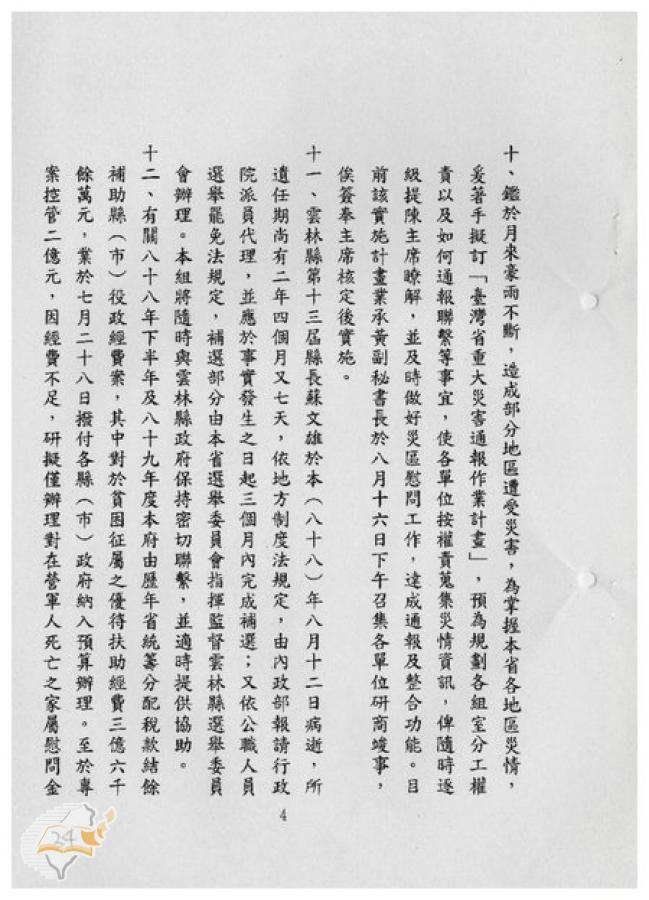 十、鑑於月來豪雨不斷，造成部分地區遭受災害，為掌握本省各地區災情，
爰著手擬訂「臺灣省重大災害通報作業計畫」，預為規劃各組室分工權
責以及如何通報聯繫等事宜，使各單位按權責蒐集災情資訊，俾隨時逐
級提陳主席瞭解，並及時做好災區慰問工作，達成通報及整合功能。目
前該實施計畫業承黃副秘書長於八月十六日下午召集各單位研商竣事，
俟簽奉主席核定後實施。
十一、雲林縣第十三屆縣長蘇文雄於本（八十八）年八月十二日病逝，所
遺任期尚有二年四個月又七天，依地方制度法規定，由內政部報請行政
院派員代理，並應於事實發生之日起三個月內完成補選；又依公職人員
選舉罷免法規定，補選部分由本省選舉委員會指揮監督雲林縣選舉委員
會辦理。本組將隨時與雲林縣政府保持密切聯繫，並適時提供協助。
十二、有關八十八年下半年及八十九年度本府由歷年省統籌分配稅款結餘
補助縣（市）役政經費案，其中對於貧困征屬之優待扶助經費三億六千
餘萬元，業於七月二十八日撥付各縣（市）政府納入預算辦理。至於專
案控管二億元，因經費不足，研擬僅辦理對在營軍人死亡之家屬慰問金
4
24